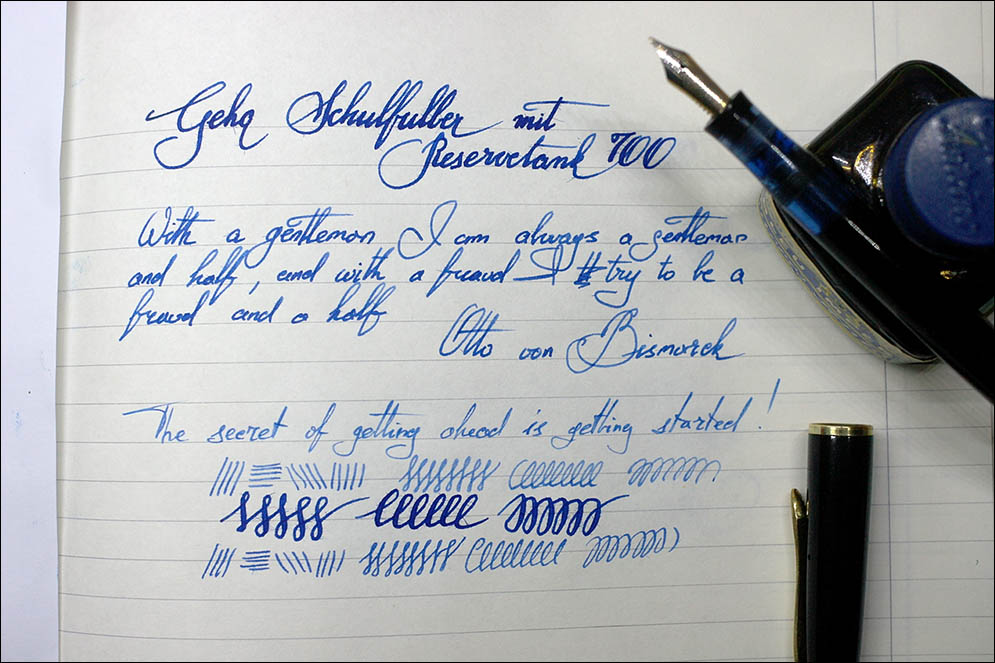 Geha Schulfuller mit
Reservetank 700
With a gentleman I am always a gentleman
and half, and with a fraud I try to be a
fraud and a half
Otto von Bismarck
The secret of getting ahead is getting started!